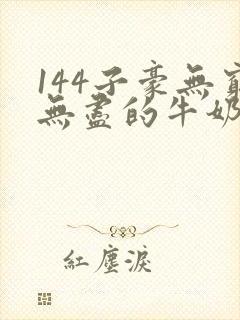 144子豪無窮
無盡的牛奶
紅塵淚